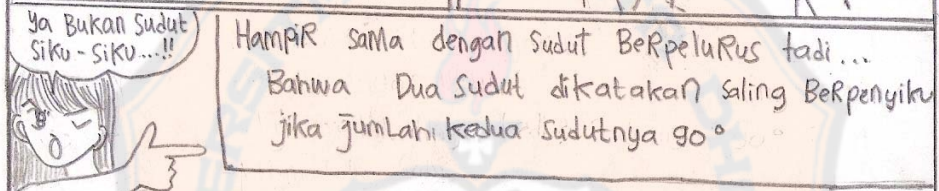 Ya Bukan Sudut
Siku-Siku....!!
HampiR saMa dengan Sudut BeRpeluRus tadi...
Bahwa Dua Sudut dikatakan Saling BeRpenyiku
jika jumLah kedua Sudutnya 90°